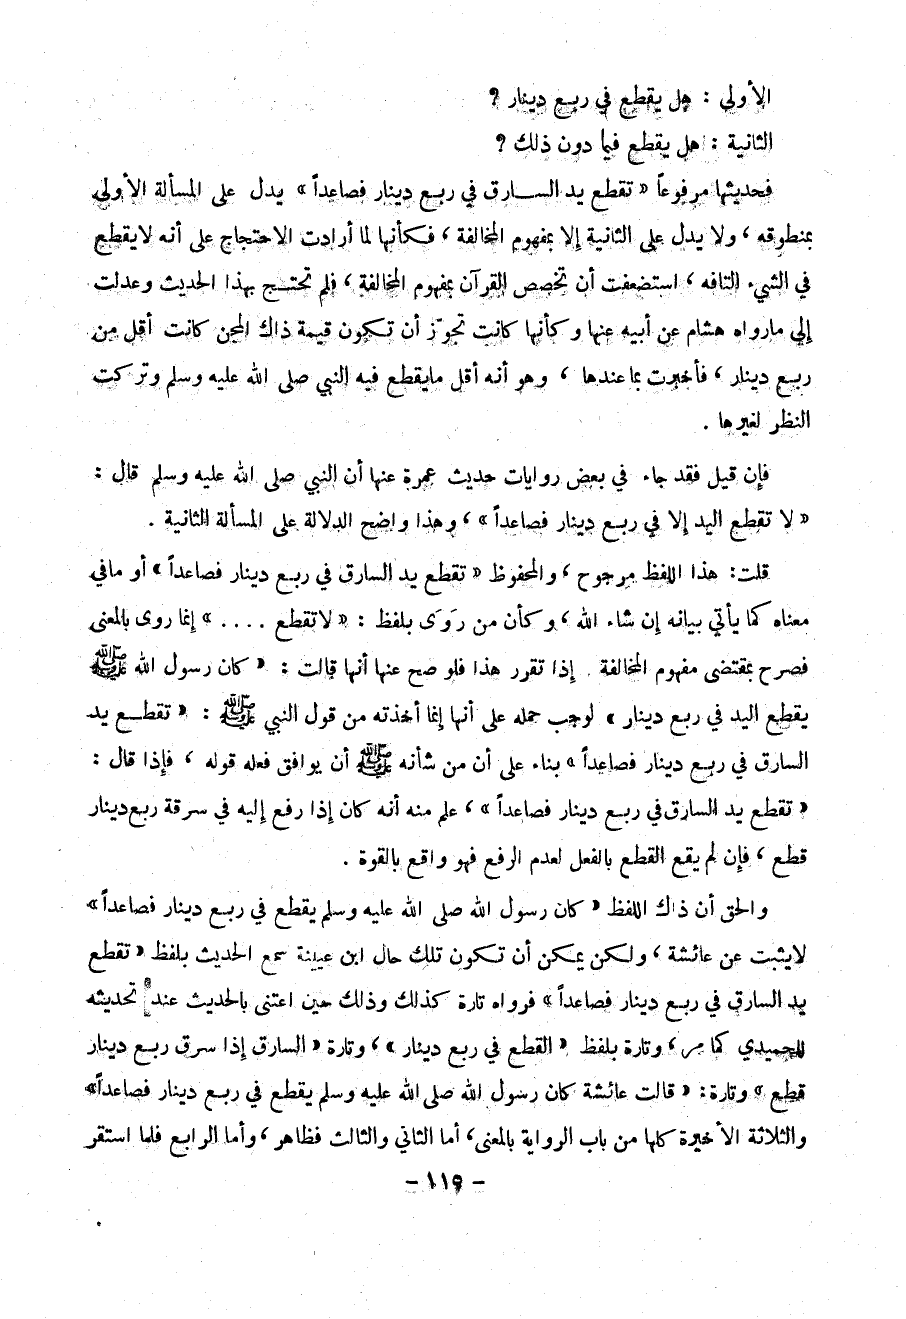 الأولى : هل يقطع في ربع دينار ؟
الثانية : هل يقطع فيما دون ذلك ؟
فحديثها مرفوعاً « تقطع يد الســـارق في ربع دينار فصاعداً » يدل على المسألة الأولى
بمنطوقه ، ولا يدل على الثانية إلا بمفهوم المخالفة ، فـكأنها لما أرادت الاحتجاج على أنه لايقطع
في الشيء التافه ، استضعفت أن تخصص القرآن بمفهوم المخالفة ، فلم تحتـج بهذا الحديث وعدلت
إلى مارواه هشام عن أبيه عنها وكأنها كانت تجوّز أن تـكون قيمة ذاك المجن كانت أقل من
ربع دينار ، فأخبرت بما عندها ، وهو أنه أقل مايقطع فيه النبي صلى الله عليه وسلم وتركت
النظر لغيرها .
فإن قيل فقد جاء في بعض روايات حديث عمرة عنها أن النبي صلى الله عليه وسلم قال :
« لا تقطع اليد إلا في ربع دينار فصاعداً » ، وهذا واضح الدلالة على المسألة الثانية .
قلت: هذا اللفظ مرجوح ، والمحفوظ « تقطع يد السارق في ربع دينار فصاعداً » أو مافي
معناه كما يأتي بيانه إن شاء الله ، وكأن من رَوَى بلفظ : « لاتقطع .... » إنما روى بالمعنى
فصرح بمقتضى مفهوم المخالفة . إذا تقرر هذا فلو صح عنها أنها قالت : « كان رسول الله ﷺ
يقطع اليد في ربع دينار » لوجب حمله على أنها إنما أخذته من قول النبي ﷺ : « تقطـع يد
السارق في ربع دينار فصاعداً » بناء على أن من شأنه ﷺ أن يوافق فعله قوله ، فإذا قال :
« تقطع يد السارق في ربع دينار فصاعداً » ، علم منه أنه كان إذا رفع إليه في سرقة ربع دينار
قطع ، فإن لم يقع القطع بالفعل لعدم الرفع فهو واقع بالقوة .
والحق أن ذاك اللفظ « كان رسول الله صلى الله عليه وسلم يقطع في ربع دينار فصاعداً »
لايثبت عن عائشة ، ولـكن يمكن أن تـكون تلك حال ابن عيينة سمع الحديث بلفظ « تقطع
يد السارق في ربع دينار فصاعداً » فرواه تارة كذلك وذلك حين اعتنى بالحديث عند تحديثه
للحميدي كما مر ، وتارة بلفظ « القطع في ربع دينار » ، وتارة « السارق إذا سرق ربع دينار
قطع » وتارة: « قالت عائشة كان رسول الله صلى الله عليه وسلم يقطع في ربع دينار فصاعداً »
والثلاثة الأخيرة كلها من باب الرواية بالمعنى ، أما الثاني والثالث فظاهر ، وأما الرابع فلما استقر
- ١١٩ -